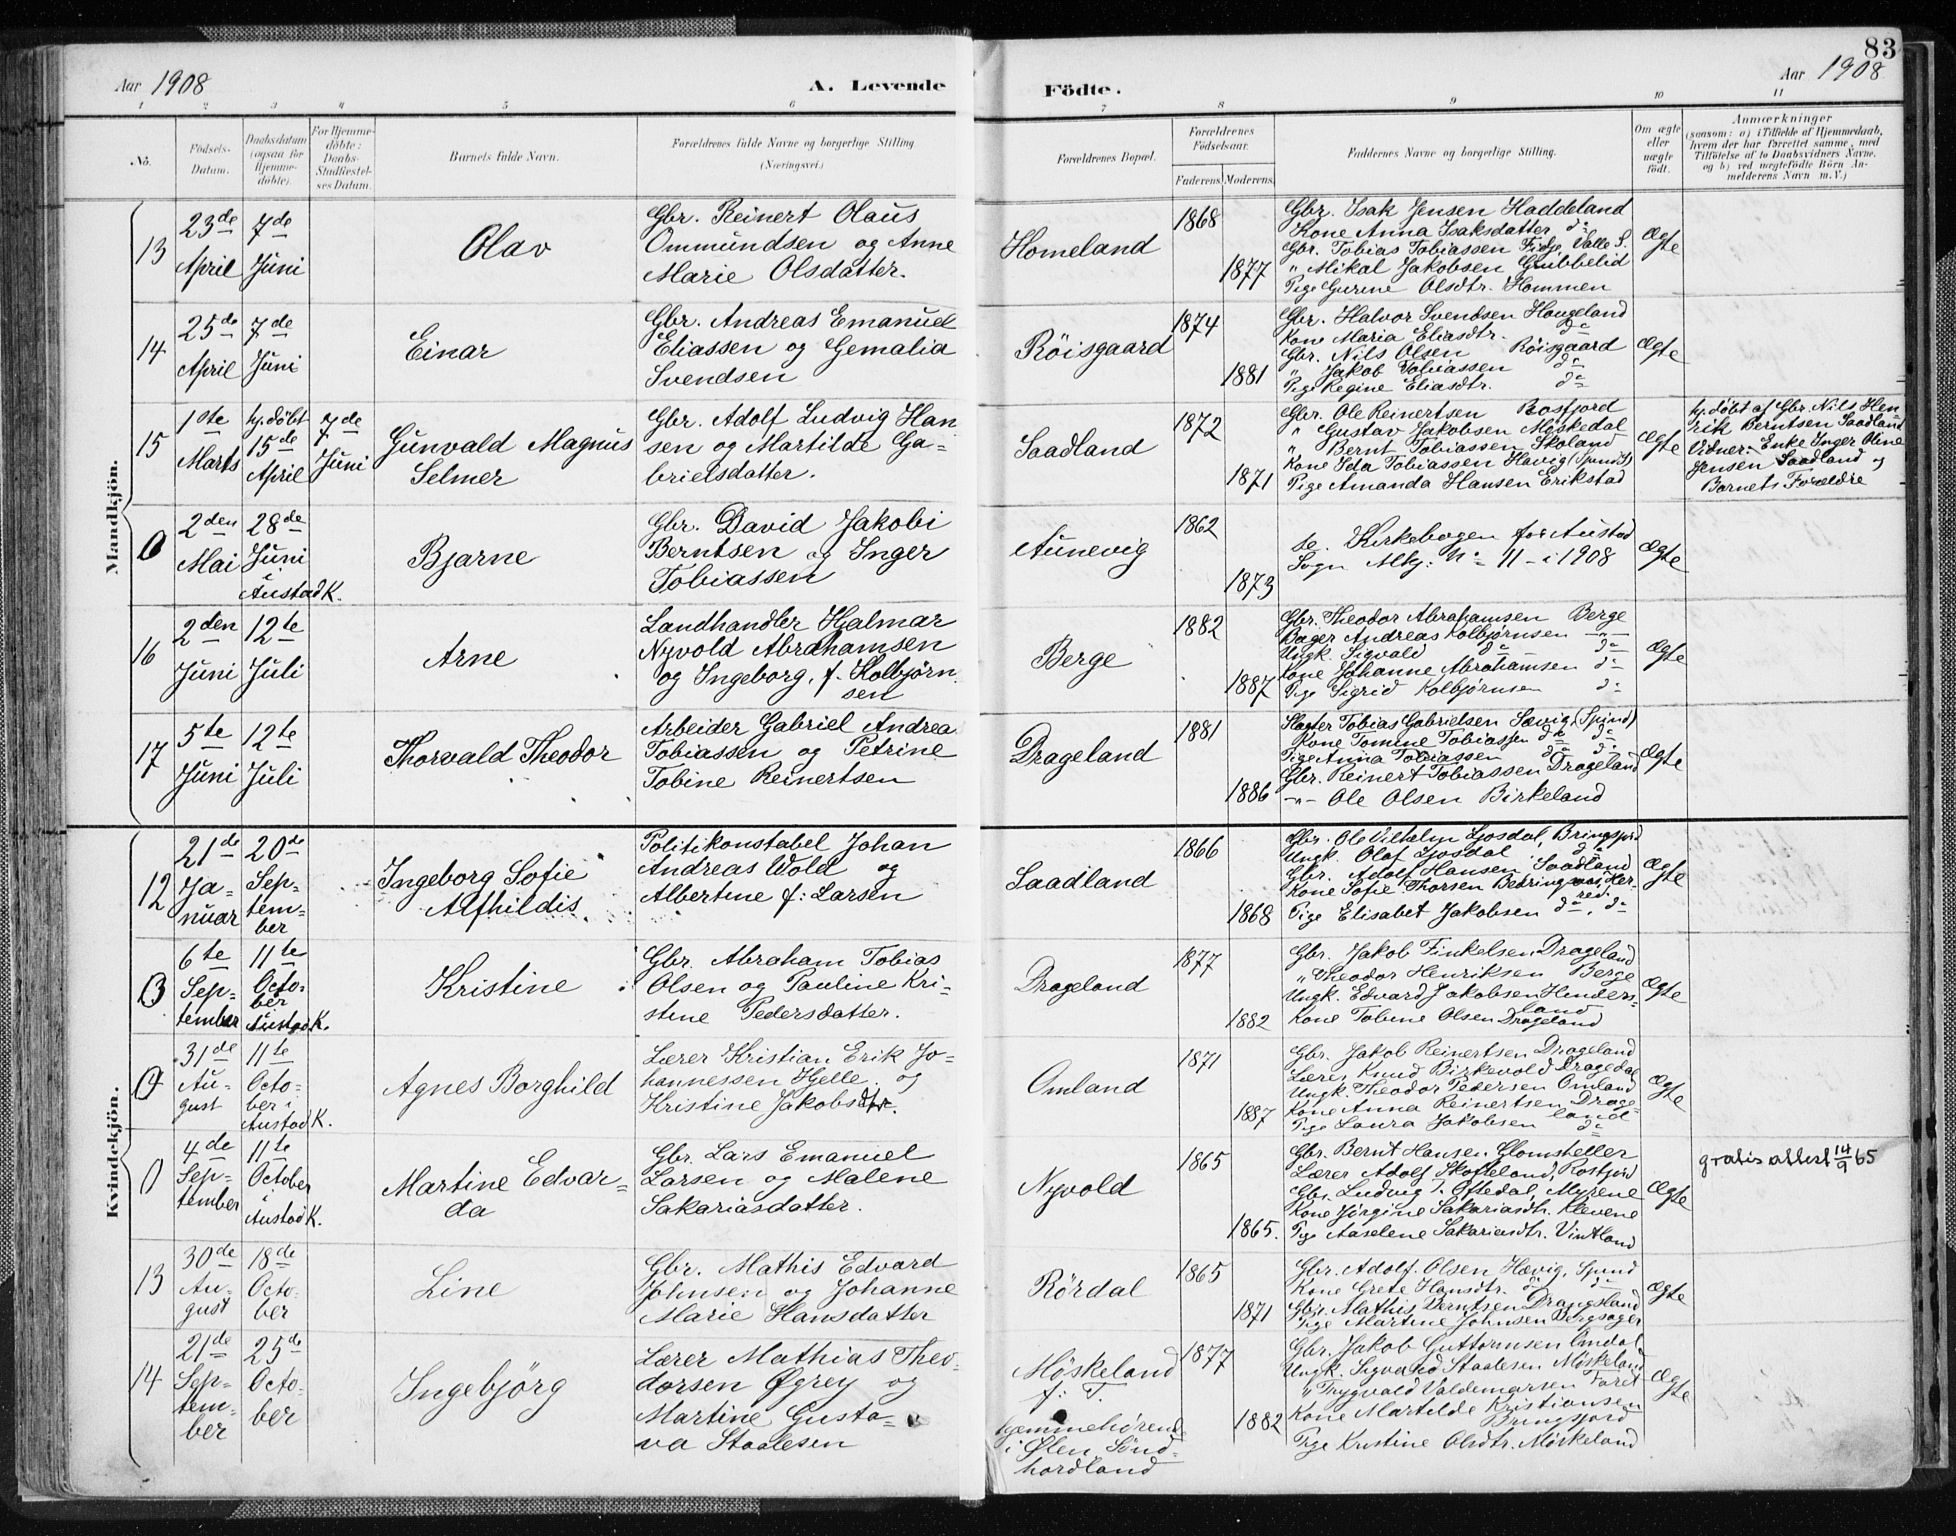 83
Aar 1908
A. Levende
Födte.
Aar 1908
1 2 3 4 5 6 7 8 9 10 11
No.
Födsels-
Datum.
Daabsdatum
(ogsaa for
Hjemme-
döbte).
For Hjemme-
döbte:
Daabs-
Stadfæstel-
ses Datum.
Barnets fulde Navn.
Forældrenes fulde Navne og borgerlige Stilling
(Næringsvei.)
Forældrenes Bopæl.
Forældrenes
Födselsaar.
Faderens. Moderens.
Faddernes Navne og borgerlige Stilling.
Om ægte
eller
uægte
födt.
Anmærkninger
(saasom: a) i Tilfælde af Hjemmedaab,
hvem der har forrettet samme, med
Tilföielse af to Daabsvidners Navne,
og b) ved uægtefödte Börn An-
melderens Navn m. V.)
Mandkjön.
13
23de
April
7de
Juni
Olav
Gbr. Reinert Olaus
Ommundsen og Anne
Marie Olsdatter.
Homeland
1868
1877
Gbr. Isak Jensen Haddeland
Kone Anna Isaksdatter do
Gbr. Tobias Tobiassen Fidje, Valle S.
" Mikal Jakobsen Gribbelid
Pige Gurine Olsdtr. Hommen
Ægte
14
25de
April
7de
Juni
Einar
Gbr. Andreas Emanuel
Eliassen og Gemalia
Svendsen
Röisgaard
1874
1881
Gbr. Halvor Svendsen Haugeland
Kone Maria Eliasdtr. do
Gbr. Nils Olsen Röisgaard
" Jakob Tobiassen do
Pige Regine Eliasdtr. do
Ægte
15
1ste
Marts
hj. döbt
15de
April
7de
Juni
Gunvald Magnus
Selmer
Gbr. Adolf Ludvig Han
sen og Martilde Ga-
brielsdatter.
Saadland
1872
1871
Gbr. Ole Reinertsen Rosfjord
" Gustav Jakobsen Möskedal
" Bernt Tobiassen Skoland
Kone Ida Tobiassen Havig (Spind S)
Pige Amanda Hansen Erikstad
Ægte
hj. döbt af Gbr. Nils Hen-
rik Berntsen Saadland
Vidner: Enke Inger Oline
Jensen Saadland og
Barnets Forældre
0
2den
Mai
28de
Juni
i
Austad K.
Bjarne
Gbr. David Jakobi
Berntsen og Inger
Tobiassen
Aunevig
1862
1873
se. Kirkebogen for Austad
Sogn Mkj: No 11 - i 1908
Ægte
16
2den
Juni
12te
Juli
Arne
Landhandler Hjalmar
Nyvold Abrahamsen
og Ingeborg, f. Kolbjörn
sen
Berge
1882
1887
Gbr. Theodor Abrahamsen Berge
Bager Andreas Kolbjørnsen -"-
Ungk. Sigvald do do
Kone Johanne Abrahamsen do
Pige Sigrid Kolbjørnsen do
Ægte
17
5te
Juni
12te
Juli
Thorvald Theodor
Arbeider Gabriel Andrea
Tobiassen og Petrine
Tobine Reinertsen
Drageland
1881
1886
Slagter Tobias Gabrielsen Sævig (Spind)
Kone Tomine Tobiassen do do
Pige Anna Tobiassen do do
Gbr. Reinert Tobiassen Drageland
-"- Ole Olsen Birkeland
Ægte
Kvindekjön.
12
21de
Ja-
nuar
20de
Sep-
tem-
ber
Ingeborg Sofie
Alfhildis
Politikonstabel Johan
Andreas Wold og
Albertine f: Larsen
Saadland
1866
1868
Gbr. Ole Vilhelm Ljosdal, Bringsjord
Ungk. Olaf Ljosdal do
Gbr. Adolf Hansen Saadland
Kone Sofie Thorsen Bedringsaas, Her-
red.
Pige Elisabet Jakobsen do, do
Ægte
0
6te
Sep-
tember
11te
Octo-
ber
Austad K.
Kristine
Gbr. Abraham Tobias
Olsen og Pauline Kri-
stine Pedersdatter.
Drageland
1877
1882
Gbr. Jakob Finkelsen Drageland
" Theodor Henriksen Berge
Ungk. Edvard Jakobsen Henders-
land
Kone Tobine Olsen Drageland
Ægte
0
31de
Au-
gust
11te
Octo-
ber i
Austad K.
Agnes Borghild
Lærer Kristian Erik Jo-
hannessen Hjelle og
Kristine Jakobsdtr.
Omland
1871
1887
Gbr. Jakob Reinertsen Drageland
Lærer Knud Birkevold Dragedal
Ungk. Theodor Pedersen Omland
Kone Anna Reinertsen Drage-
land
Pige Laura Jakobsen do
Ægte
0
4de
Sep-
tember
11te
October
i
Austad K.
Martine Edvar-
da
Gbr. Lars Emanuel
Larsen og Malene
Sakariasdatter.
Nyvold
1865
1865.
Gbr. Bernt Hansen Glomsheller
Lærer Adolf Skofteland, Rosfjord
Gbr. Ludvig T. Oftedal, Myrene
Kone Jørgine Sakariasdtr. Klevene
Pige Aaselene Sakariasdtr. Vintland
Ægte
gratis attest 14/9 65
13
30de
Au-
gust
18de
Octo-
ber
Line
Gbr. Mathis Edvard
Johnsen og Johanne
Marie Hansdatter
Rördal
1865
1871
Gbr. Adolf. Olsen Hævig, Spind
Kone Grete Hansdtr. do do
Gbr. Mathis Berntsen Drangsland
Pige Martine Johnsen Bergsager
Ægte
14
21de
Sep-
tem-
ber
25de
Octo-
ber
Ingebjörg
Lærer Mathias Theo-
dorsen Øgrey og
Martine Gusta-
va Staalesen
Möskeland
f: T.
hjemmehörend
i Ølen, Sönd-
hordland
1877
1882
Gbr. Jakob Guttormsen Omdal
Ungk. Sigvald Staalesen Möskeland
" Thygvald Valdemarsen Faret
Kone Martilde Kristiansen
Bringsjord
Pige Kristine Olsdtr. Möskeland
Ægte